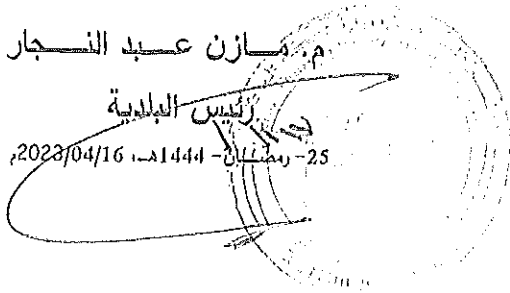 م. مازن عبد النجار
رئيس البلدية
25- رمضان - 1444هـ، 2023/04/16م